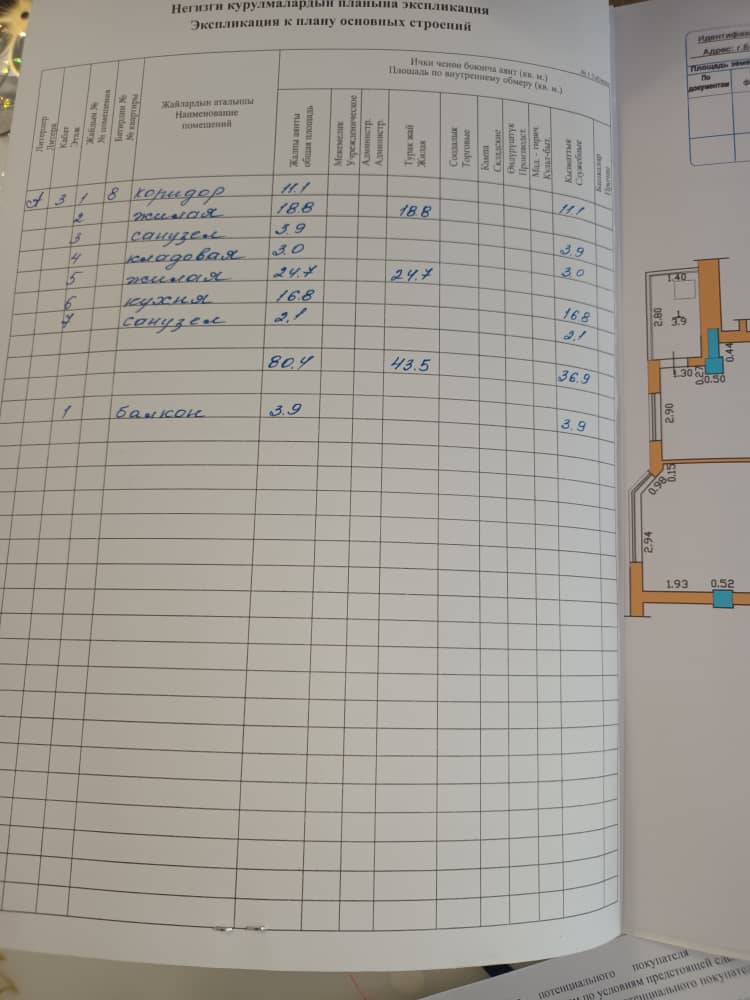 Негизги курулмалардын планына экспликация
Экспликация к плану основных строений
Ички ченөө боюнча аянт (кв. м.)
Площадь по внутреннему обмеру (кв. м.)
Литерлер
Литера
Кабат
Этаж
Жайдын №
№ помещения
Батирдин №
№ квартиры
Жайлардын аталышы
Наименование
помещений
Жалпы аянты
общая площадь
Мекемелик
Учрежденческие
Администр.
Администр.
Турак жай
Жилая
Соодалык
Торговые
Кампа
Складские
Өндүрүштүк
Производст.
Мад. - тирич.
Культ-быт.
Кызматтык
Служебные
Башкалар
Прочие
А 3 1 8 коридор 11.1 11.1
2 жилая 18.8 18.8
3 санузел 3.9 3.9
4 кладовая 3.0 3.0
5 жилая 24.7 24.7
6 кухня 16.8 16.8
7 санузел 2.1 2.1
80.4 43.5 36.9
1 балкон 3.9 3.9
Идентифи
Адрес: г.Б
Площадь земе
По
документам
1.40
2.80
1
3.9
0.44
1.30
0.27
0.50
2.90
0.15
0.98
2.94
1.93 0.52
потенциального покупателя
по условиям предстоящей сде